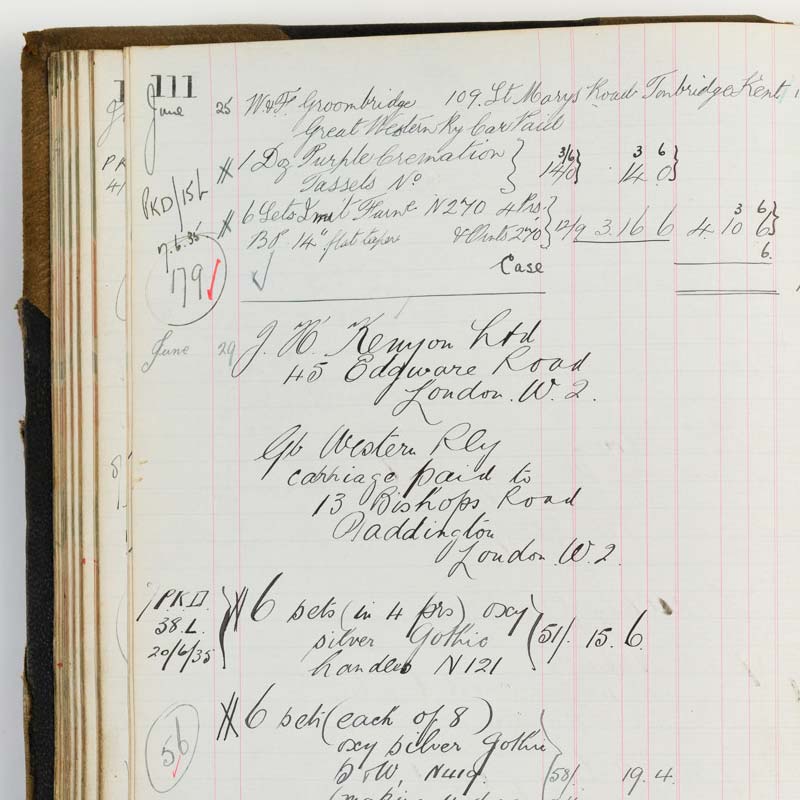 111
June 25 W & F Groombridge 109. St Marys Road Tonbridge Kent
Great Western Ry Car Paid
1 Doz Purple Cremation } 3/6 3 6
Tassels No 14/0 } 14 0 }
PKD/15/L
6 Sets Imit Furne N270 4 Prs } 3 6
17.6.35 Bd. 14" flat keepers & Points 270 } 12/9 3.16 6 4. 10 6
6.
Case
179
June 29 J. H. Kenyon Ltd
45 Edgware Road
London. W. 2.
Gt Western Rly
carriage paid to
13 Bishops Road
Paddington
London. W. 2.
PKD 6 sets (in 4 prs) oxy
38. L. silver Gothic 51/. 15. 6.
20/6/35 handles N121
6 sets (each of 8)
56 oxy silver Gothic
N419. 58/. 19. 4.